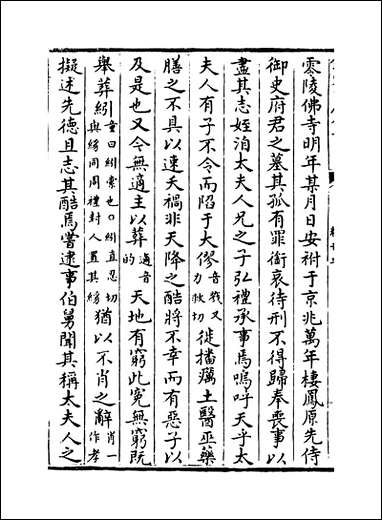 零陵佛寺明年某月日安祔于京兆萬年棲鳳原先侍
御史府君之墓其孤有罪銜哀待刑不得歸奉喪事以
盡其志姪洎太夫人兄之子弘禮承事焉嗚呼天乎太
夫人有子不令而陷于大僇音戮又力救切徙播癘土醫巫藥
膳之不具以速夭禍非天降之酷將不幸而有惡子以
及是也又今無適主以葬適音的天地有窮此冤無窮既
舉葬紖童曰紖索也○紖直忍切與綍同周禮封人置其綍猶以不肖之辭肖一作孝
擬述先德且志其酷焉嘗逮事伯舅聞其稱太夫人之